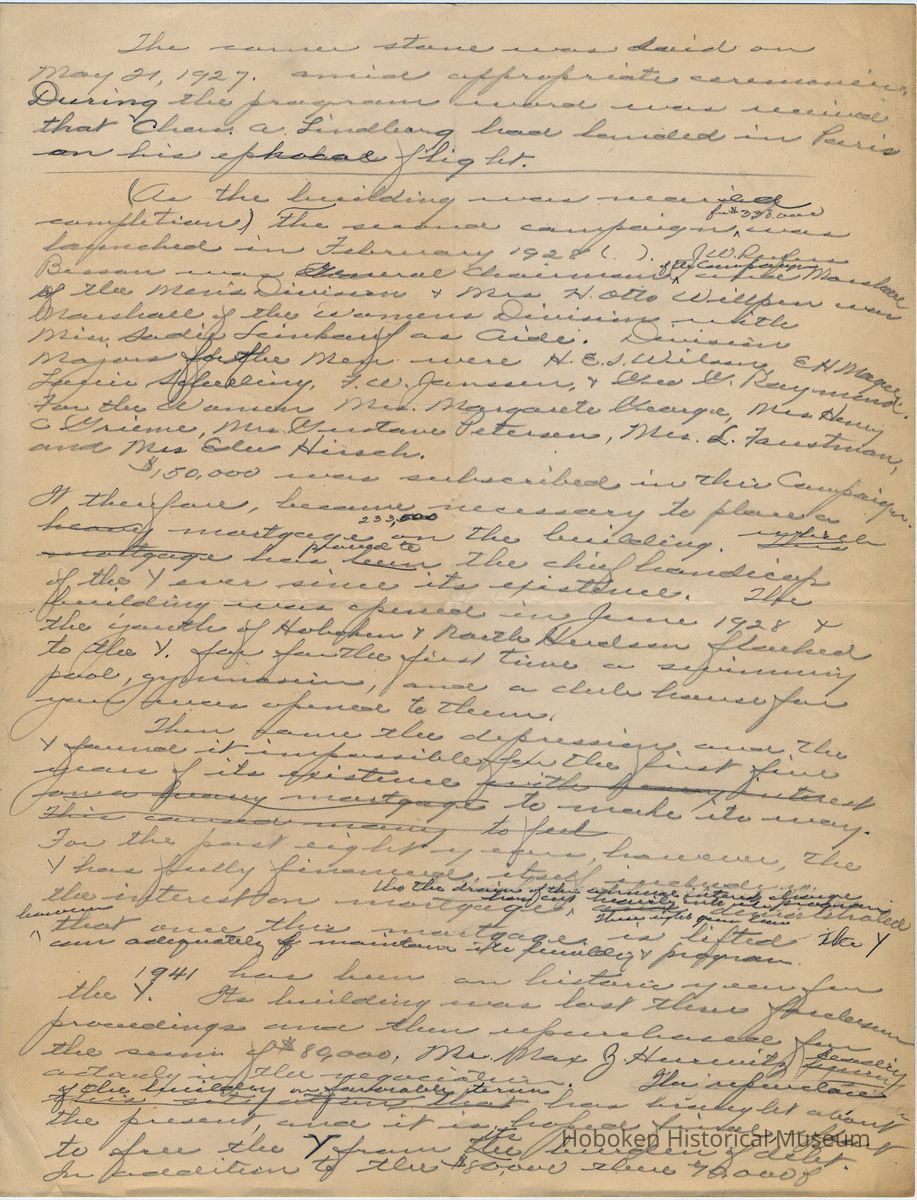 The corner stone was laid on
May 21, 1927. amid appropriate ceremonies.
During the program word was received
that Chas. A. Lindberg had landed in Paris
on his ephocal flight.
(As the building was neared
completion) the second campaign was
for $338,000
launched in February 1928 ( ). J. W. Rufus
Besson was General Chairman of the Campaign Marshall
of the Men's Division & Mrs. H. Otto Wittpen was
Marshall of the Womens Division with
Miss Sadie Leinkauf as Aide. Division
Majors for the Men were H. E. S. Wilson, E H Magee
F. W. Janssen, & Geo G. Raymond.
For the Women Mrs. Margarete George, Mrs Henry
C Grieme, Mrs. Gustave Petersen, Mrs. L. Faustman,
and Mrs Edw Hirsch.
$150,000 was subscribed in this Campaign.
It therefore, became necessary to place a
233,500
heavy mortgage on the building. which
mortgage has been proved to the chief handicap
of the Y ever since its existence. The
building was opened in June 1928 &
the youth of Hoboken & North Hudson flocked
to the Y. for for the first time a swimming
pool, gymnasium, and a club house for
you was opened to them.
Then came the depression and the
Y found it impossible for the first five
years of its existence with heavy interest
on a heavy mortgage to make its way.
This caused many to feel
For the past eight years, however, the
Y has fully financed itself including
tho the drain of the interest charge
the interest on mortgage demonstrated
however
that once this mortgage is lifted the Y
can adequately maintain its building & program
1941 has been an historic year for
the Y. Its building was lost thru foreclosure
proceedings and then repurchased for
the sum of $89,000, Mr. Max Z Hurwitz
actively in the negociation. The repurchase
of the building on favorable terms
this situation that has brought about
the present, and it is hoped final effort
to free the Y from the burden of debt.
In addition to the $80,000 there $70,000 of
Hoboken Historical Museum